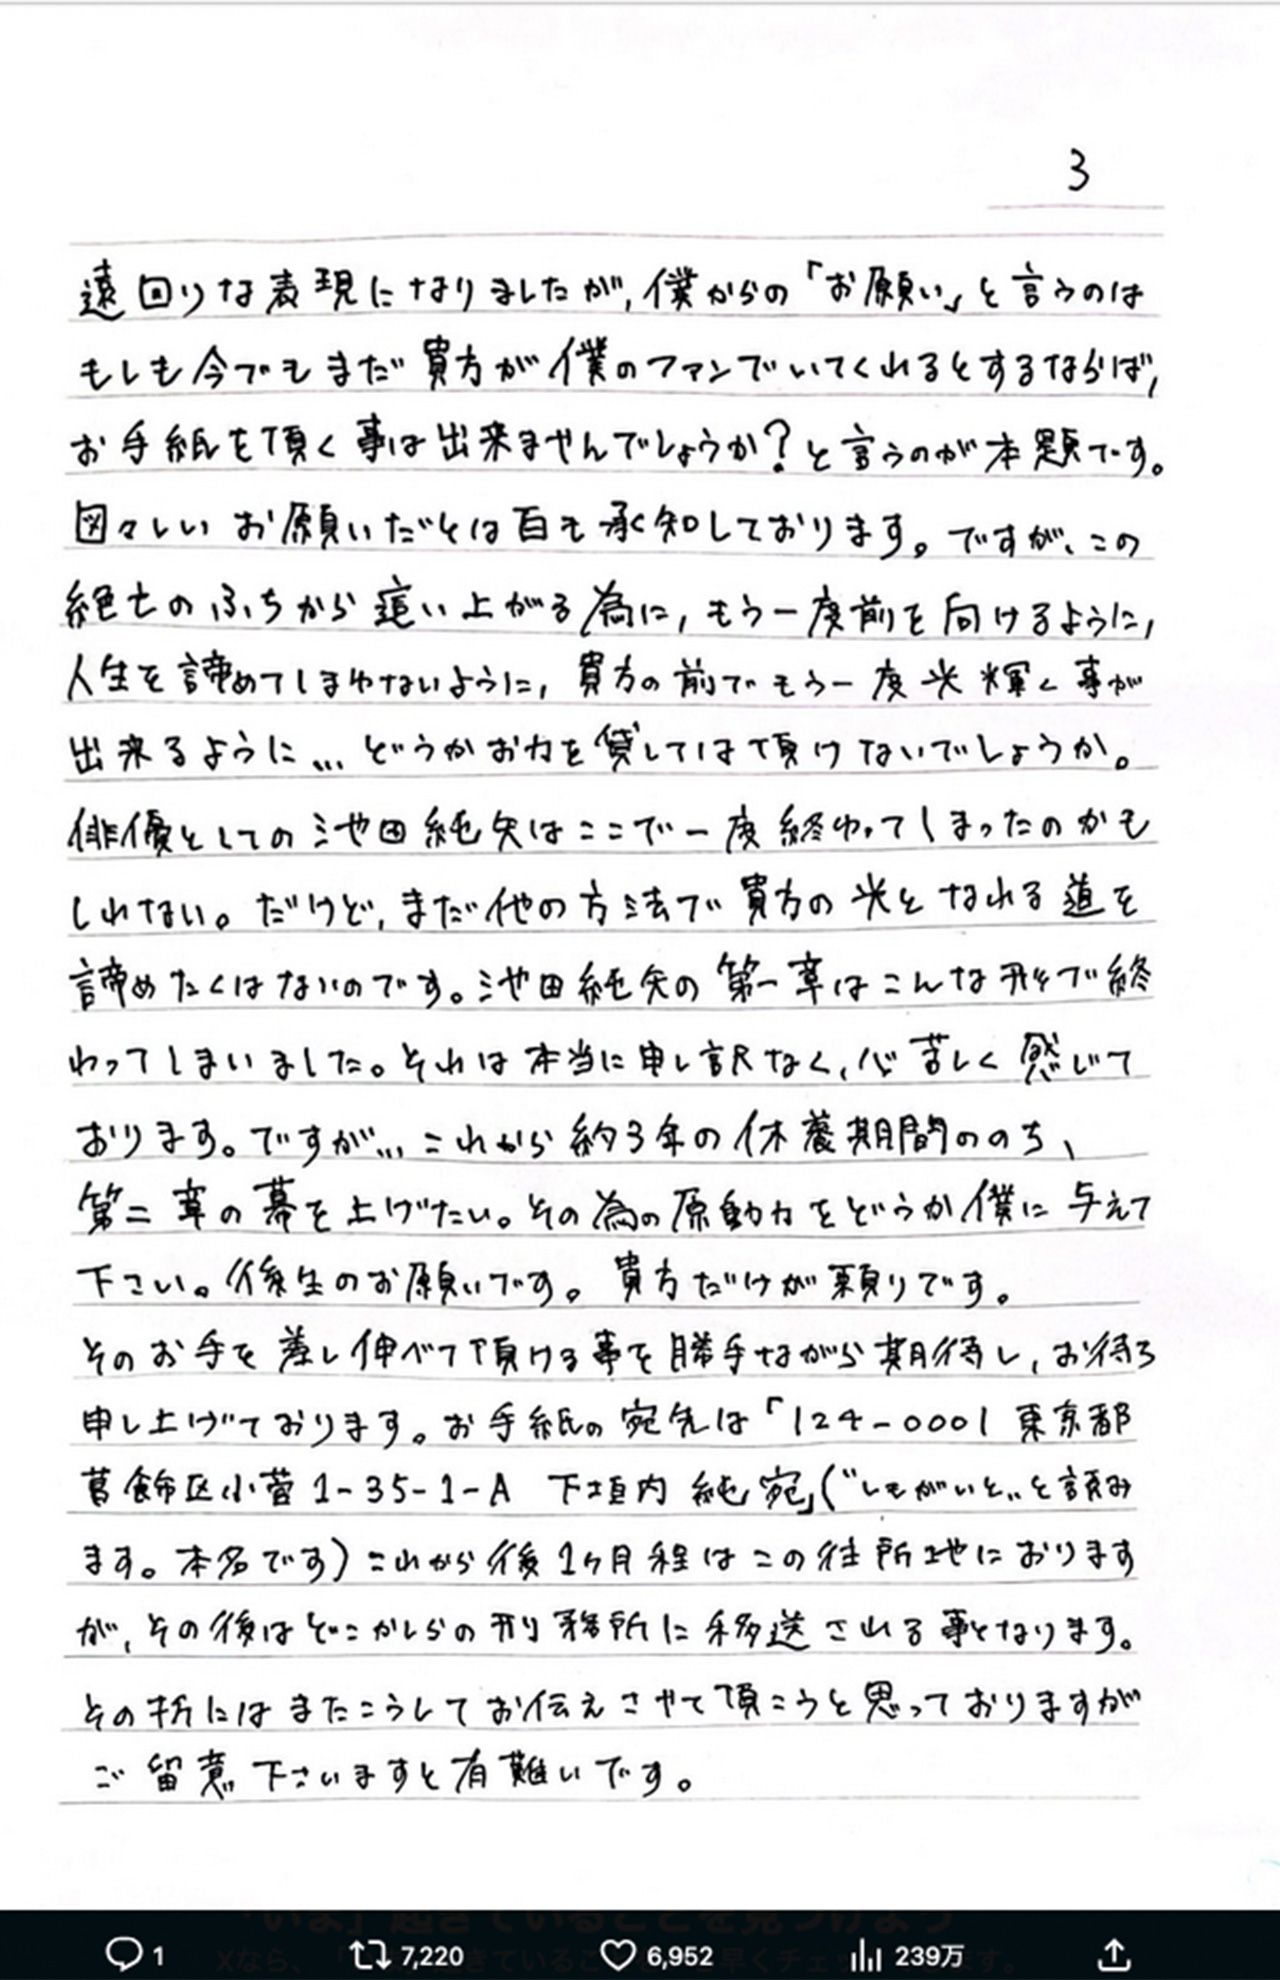 3
遠回りな表現になりましたが、僕からの「お願い」と言うのは
もしも今でもまだ貴方が僕のファンでいてくれるとするならば、
お手紙を頂く事は出来ませんでしょうか?と言うのが本題です。
図々しいお願いだとは百も承知しております。ですが、この
絶亡のふちから這い上がる為に、もう一度前を向けるように、
人生を諦めてしまわないように、貴方の前でもう一度光輝く事が
出来るように...どうかお力を貸しては頂けないでしょうか。
俳優としての池田純矢はここで一度終わってしまったのかも
しれない。だけど、まだ他の方法で貴方の光となれる道を
諦めたくはないのです。池田純矢の第一章はこんな形で終
わってしまいました。それは本当に申し訳なく、心苦しく感じて
おります。ですが...これから約3年の休養期間ののち、
第二章の幕を上げたい。その為の原動力をどうか僕に与えて
下さい。後生のお願いです。貴方だけが頼りです。
そのお手を差し伸べて頂ける事を勝手ながら期待し、お待ち
申し上げております。お手紙の宛先は「124-0001 東京都
葛飾区小菅1-35-1-A 下垣内 純 宛」("しもがいと"と読み
ます。本名です)これから後1ヶ月程はこの住所地におります
が、その後はどこかしらの刑務所に移送される事となります。
その折にはまたこうしてお伝えさせて頂こうと思っておりますが
ご留意下さいますと有難いです。
1 7,220 6,952 239万